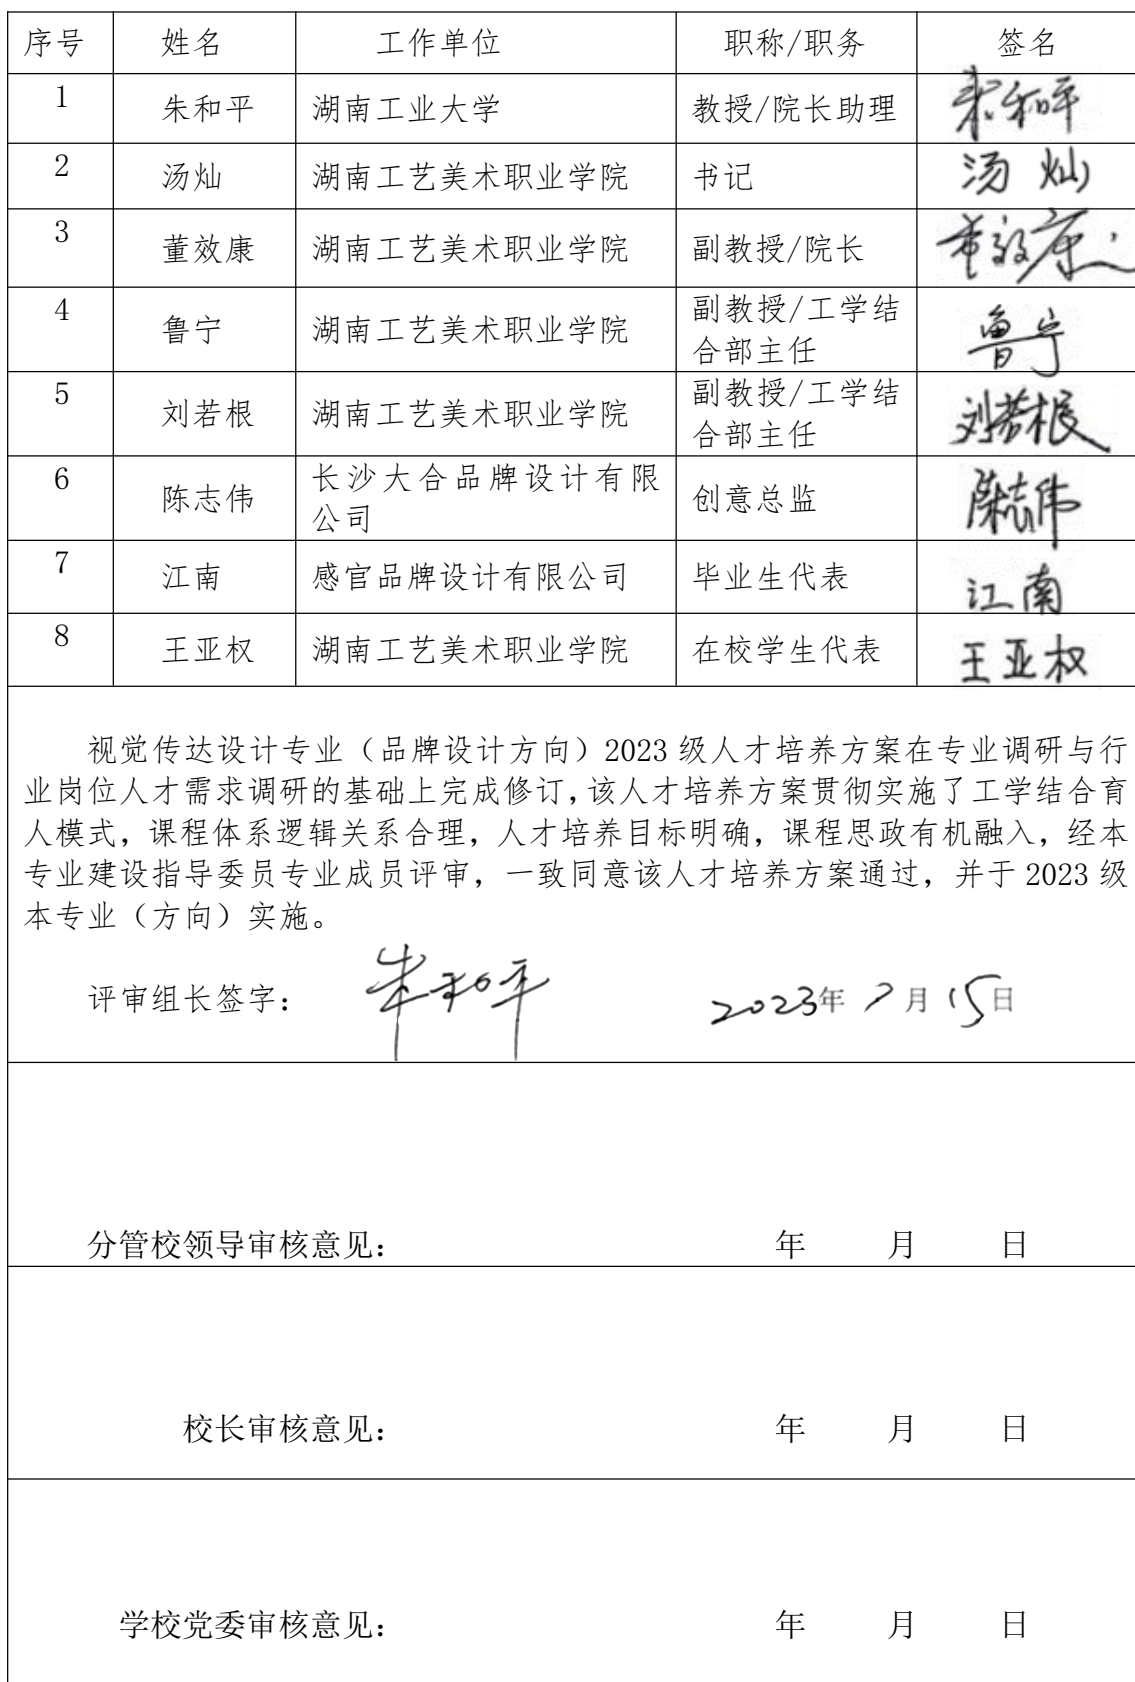 序号 姓名 工作单位 职称/职务 签名
1 朱和平 湖南工业大学 教授/院长助理 朱和平
2 汤灿 湖南工艺美术职业学院 书记 汤灿
3 董效康 湖南工艺美术职业学院 副教授/院长 董效康
4 鲁宁 湖南工艺美术职业学院 副教授/工学结
合部主任 鲁宁
5 刘若根 湖南工艺美术职业学院 副教授/工学结
合部主任 刘若根
6 陈志伟 长沙大合品牌设计有限
公司 创意总监 陈志伟
7 江南 感官品牌设计有限公司 毕业生代表 江南
8 王亚权 湖南工艺美术职业学院 在校学生代表 王亚权
视觉传达设计专业（品牌设计方向）2023 级人才培养方案在专业调研与行
业岗位人才需求调研的基础上完成修订，该人才培养方案贯彻实施了工学结合育
人模式，课程体系逻辑关系合理，人才培养目标明确，课程思政有机融入，经本
专业建设指导委员专业成员评审，一致同意该人才培养方案通过，并于 2023 级
本专业（方向）实施。
评审组长签字： 朱和平 2023年 7月 15日
分管校领导审核意见： 年 月 日
校长审核意见： 年 月 日
学校党委审核意见： 年 月 日